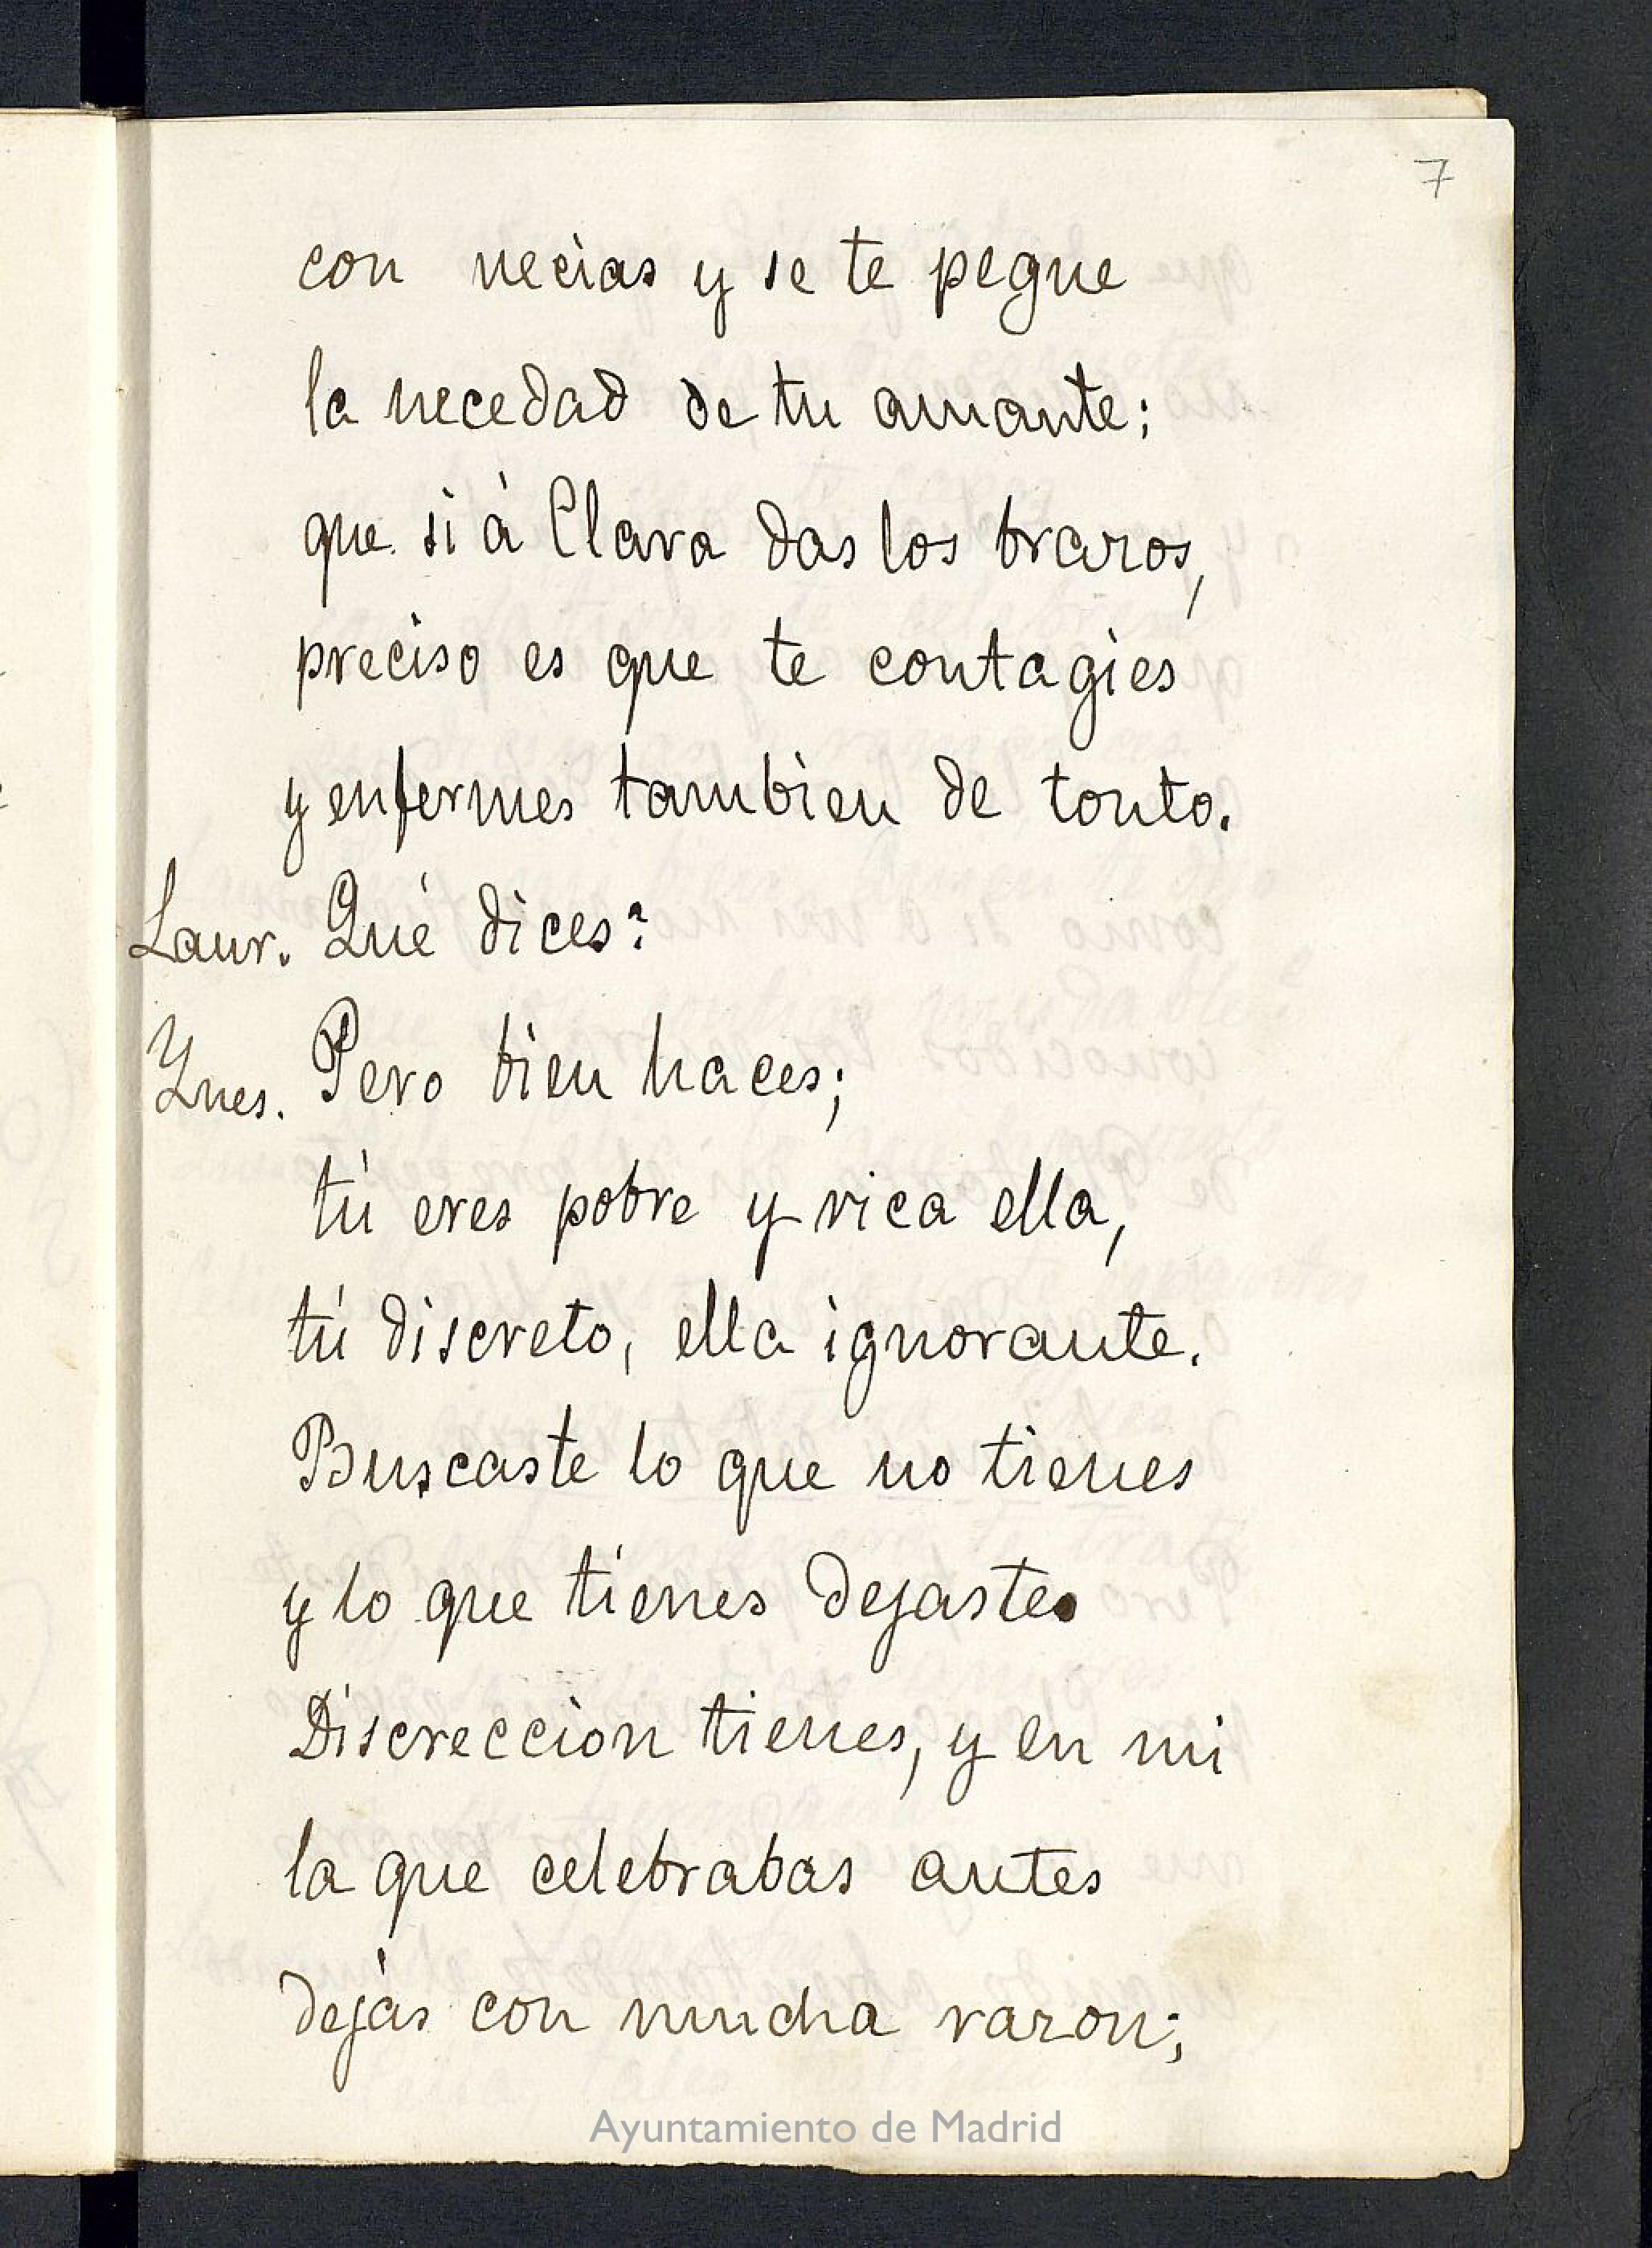 7
con necias y se te pegue
la necedad de tu amante;
que si à Clara das los brazos,
preciso es que te contagies
y enfermes tambien de tonto.
Laur. Qué dices?
Ynes. Pero bien haces;
tú eres pobre y rica ella,
tú discreto, ella ignorante.
Buscaste lo que no tienes
y lo que tienes dejaste.
Discreccion tienes, y en mi
la que celebrabas antes
dejas con mucha razon;
Ayuntamiento de Madrid